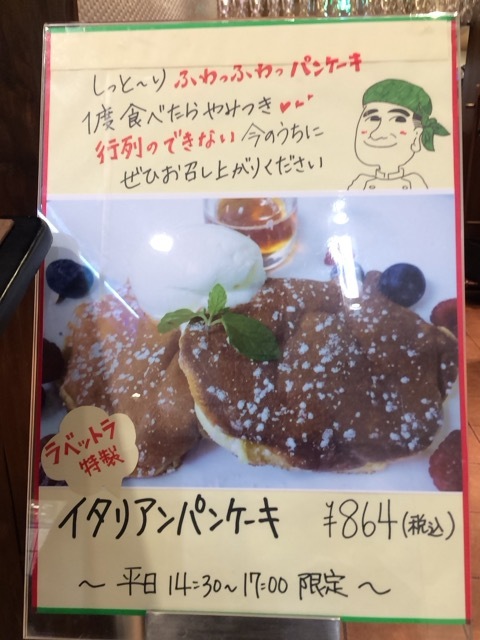 しっと〜り ふわっふわっ パンケーキ
1度食べたらやみつき♥♥
行列のできない 今のうちに
ぜひお召し上がりください
ラベットラ
特製
イタリアンパンケーキ ¥864(税込)
〜 平日 14:30〜17:00 限定 〜